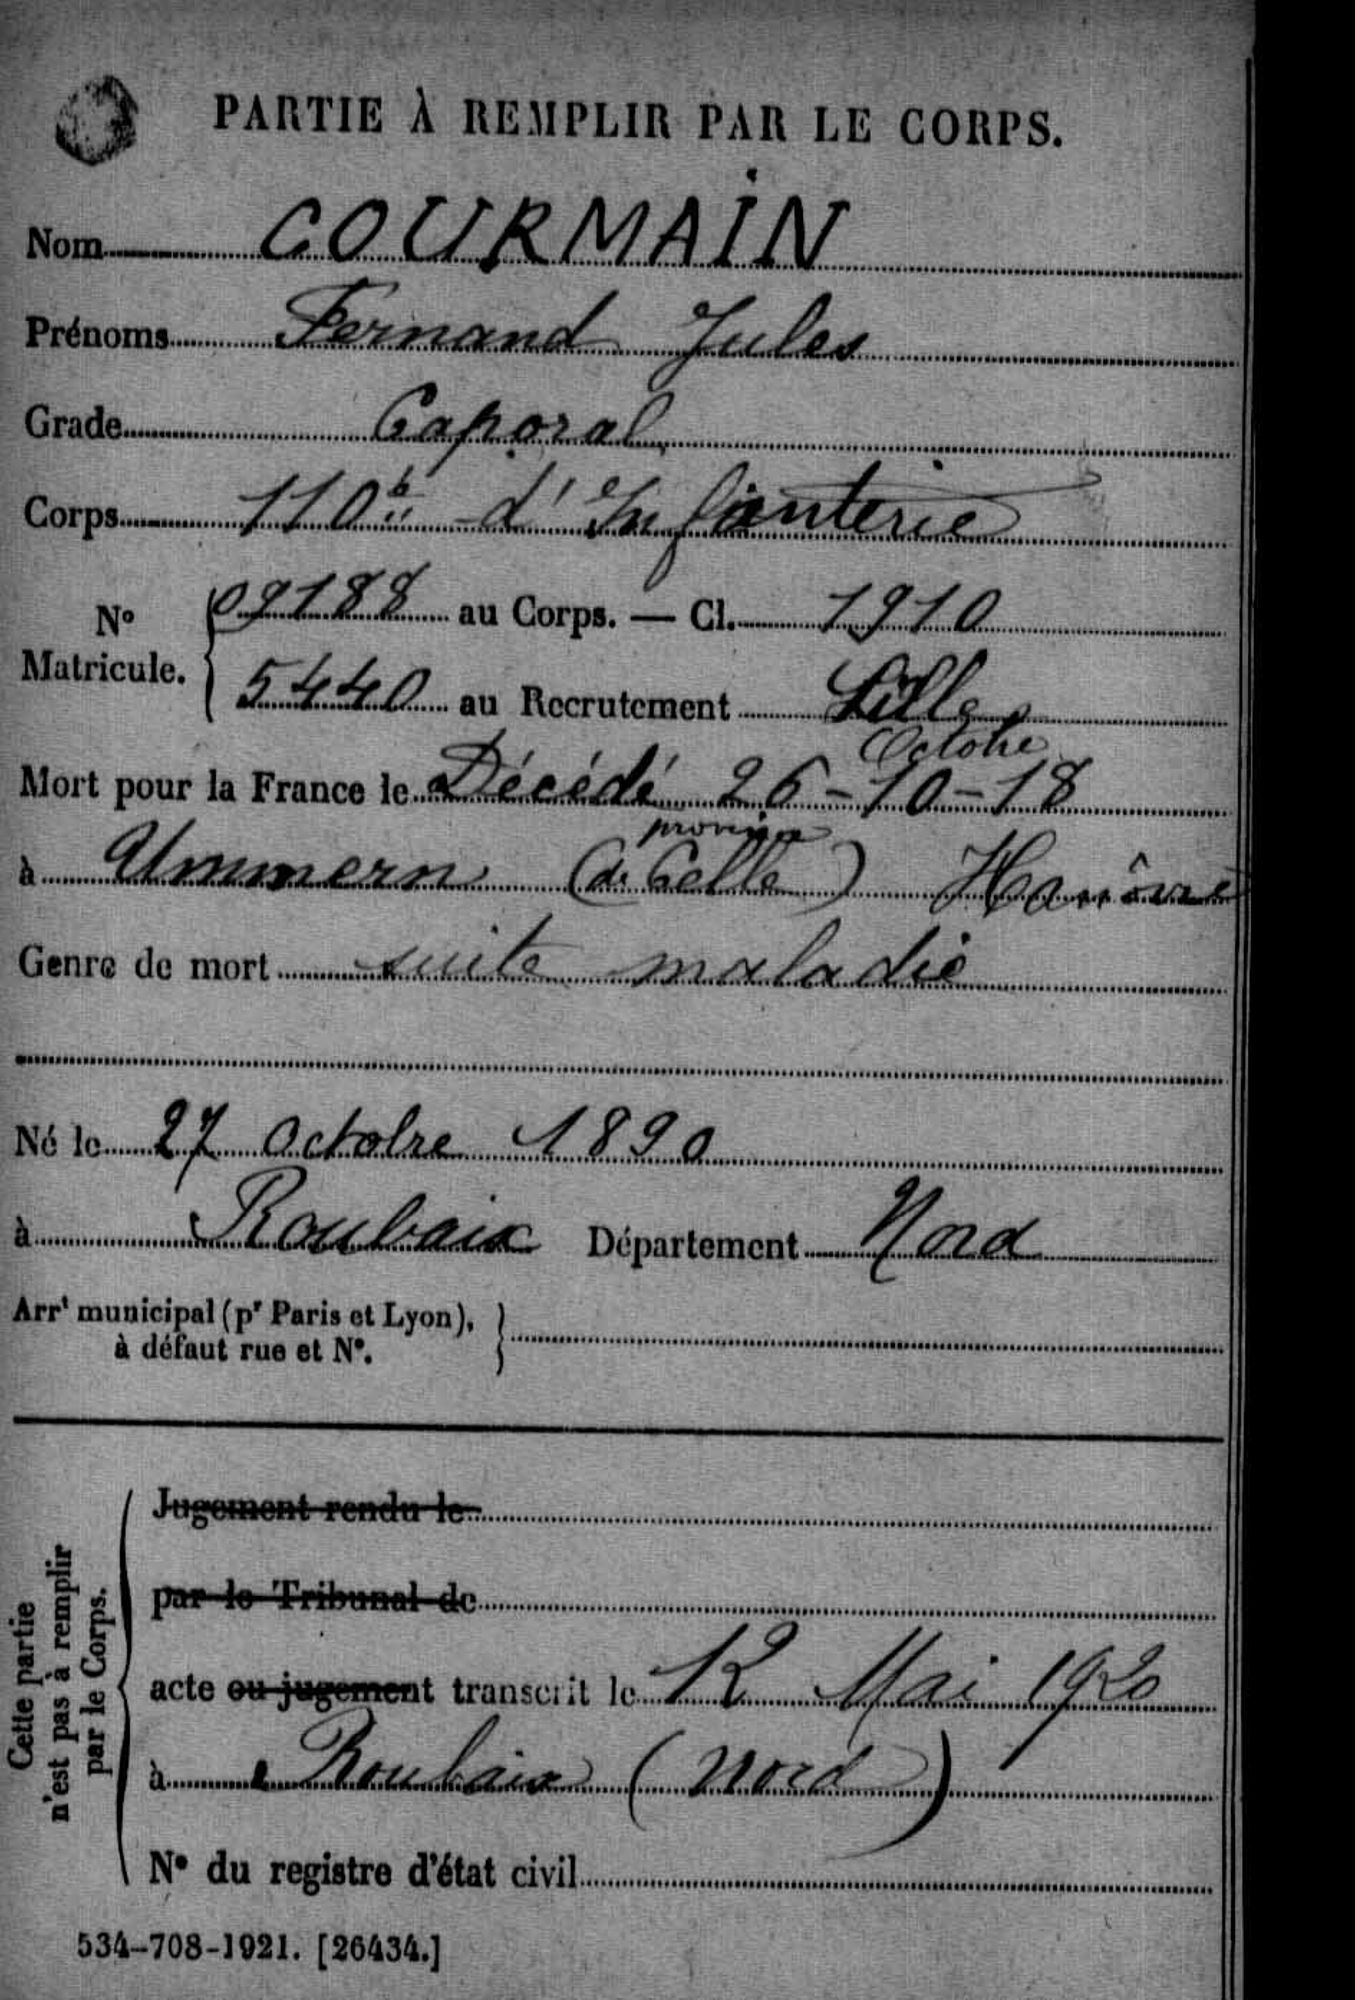 PARTIE À REMPLIR PAR LE CORPS.
Nom COURMAIN
Prénoms Fernand Jules
Grade Caporal
Corps 110e d'Infanterie
No Matricule. 09188 au Corps. — Cl. 1910
5440 au Recrutement Lille
Octobre
Mort pour la France le Décédé 26-10-18
province
à Ummern (de Celle) Hanôvre
Genre de mort suite maladie
Né le 27 Octobre 1890
à Roubaix Département Nord
Arrt municipal (pr Paris et Lyon),
à défaut rue et No.
Cette partie
n'est pas à remplir
par le Corps.
Jugement rendu le
par le Tribunal de
acte ou jugement transcrit le 12 Mai 1920
à Roubaix (Nord)
No du registre d'état civil
534-708-1921. [26434.]